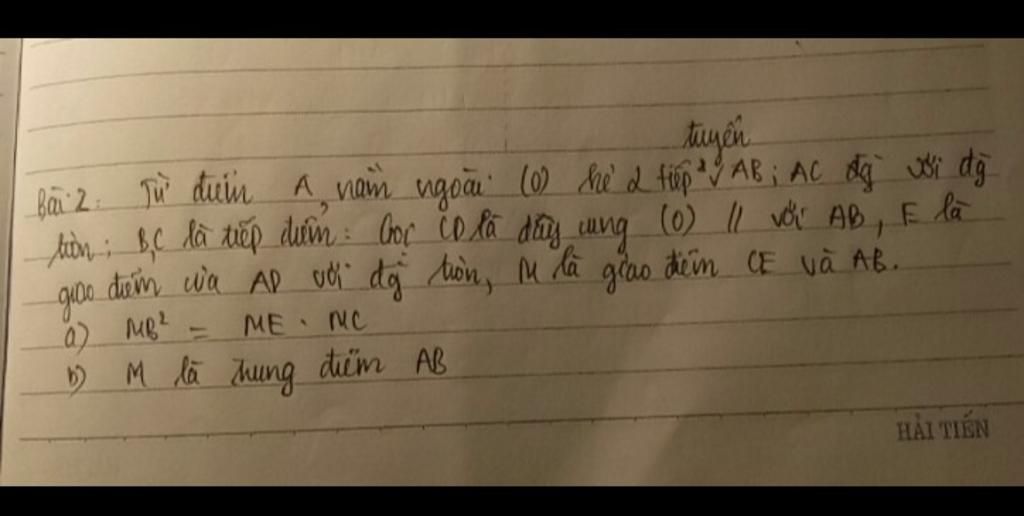 tuyến
Bài 2: Từ điểm A nằm ngoài (O) kẻ 2 tiếp² AB; AC đg với đg
tròn; B,C là tiếp điểm: Gọi CD là dây cung (O) // với AB, E là
giao điểm của AD với đg tròn, M là giao điểm CE và AB.
a) MB² = ME . MC
b) M là trung điểm AB
HẢI TIẾN